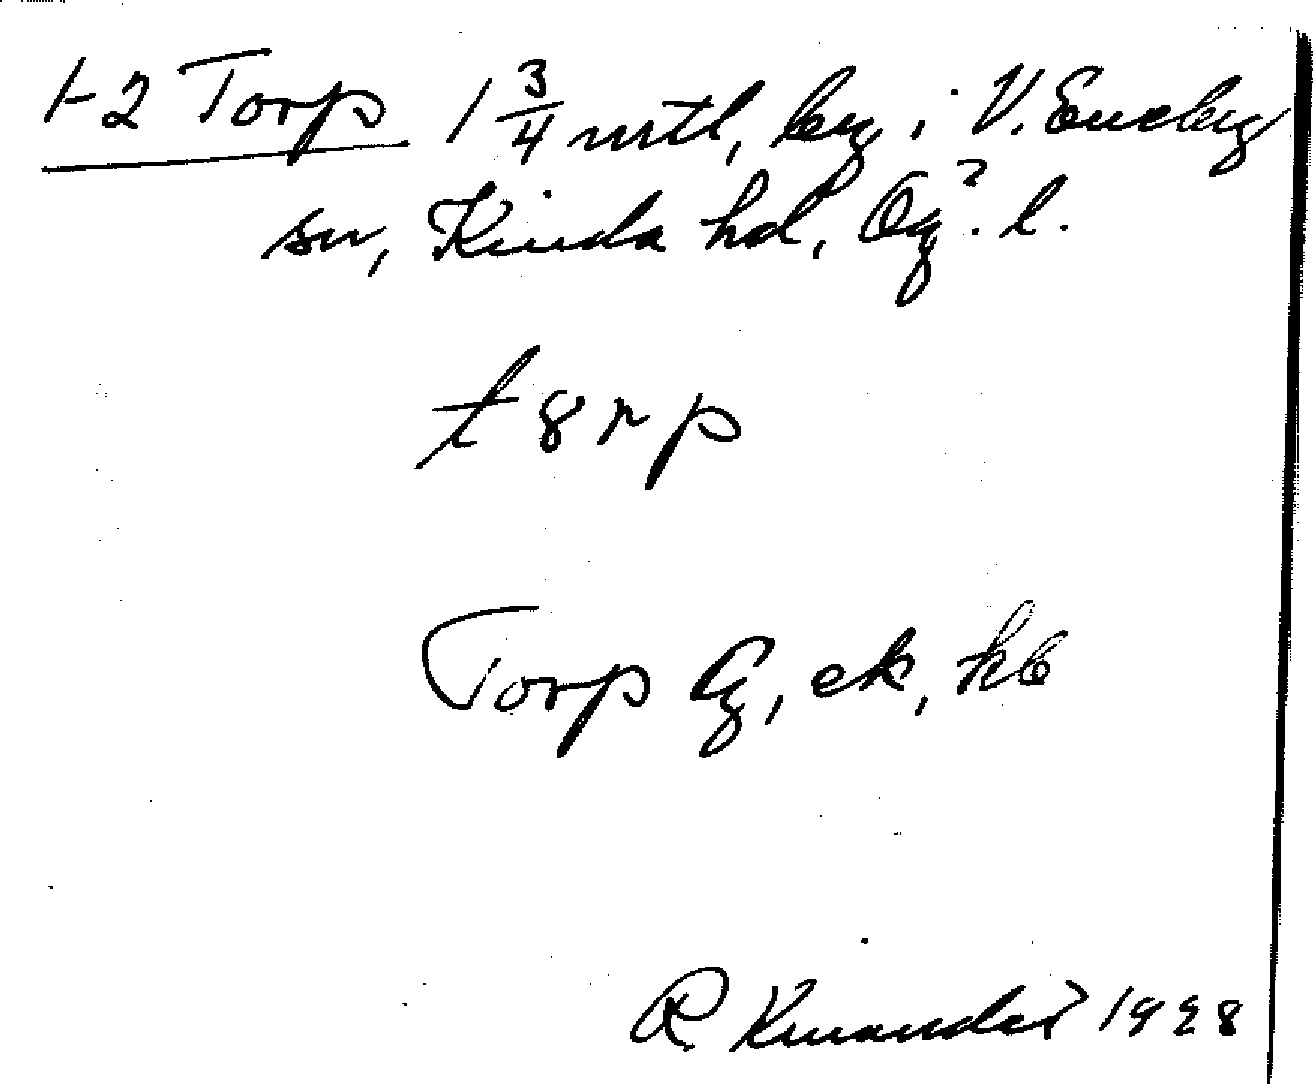 1-2 Torp 1 3/4 mtl, by i V. Eneby
sn, Kinda hd, Ög. l.
t8rp
Torp Eg, ek, kb
R Kinander 1928